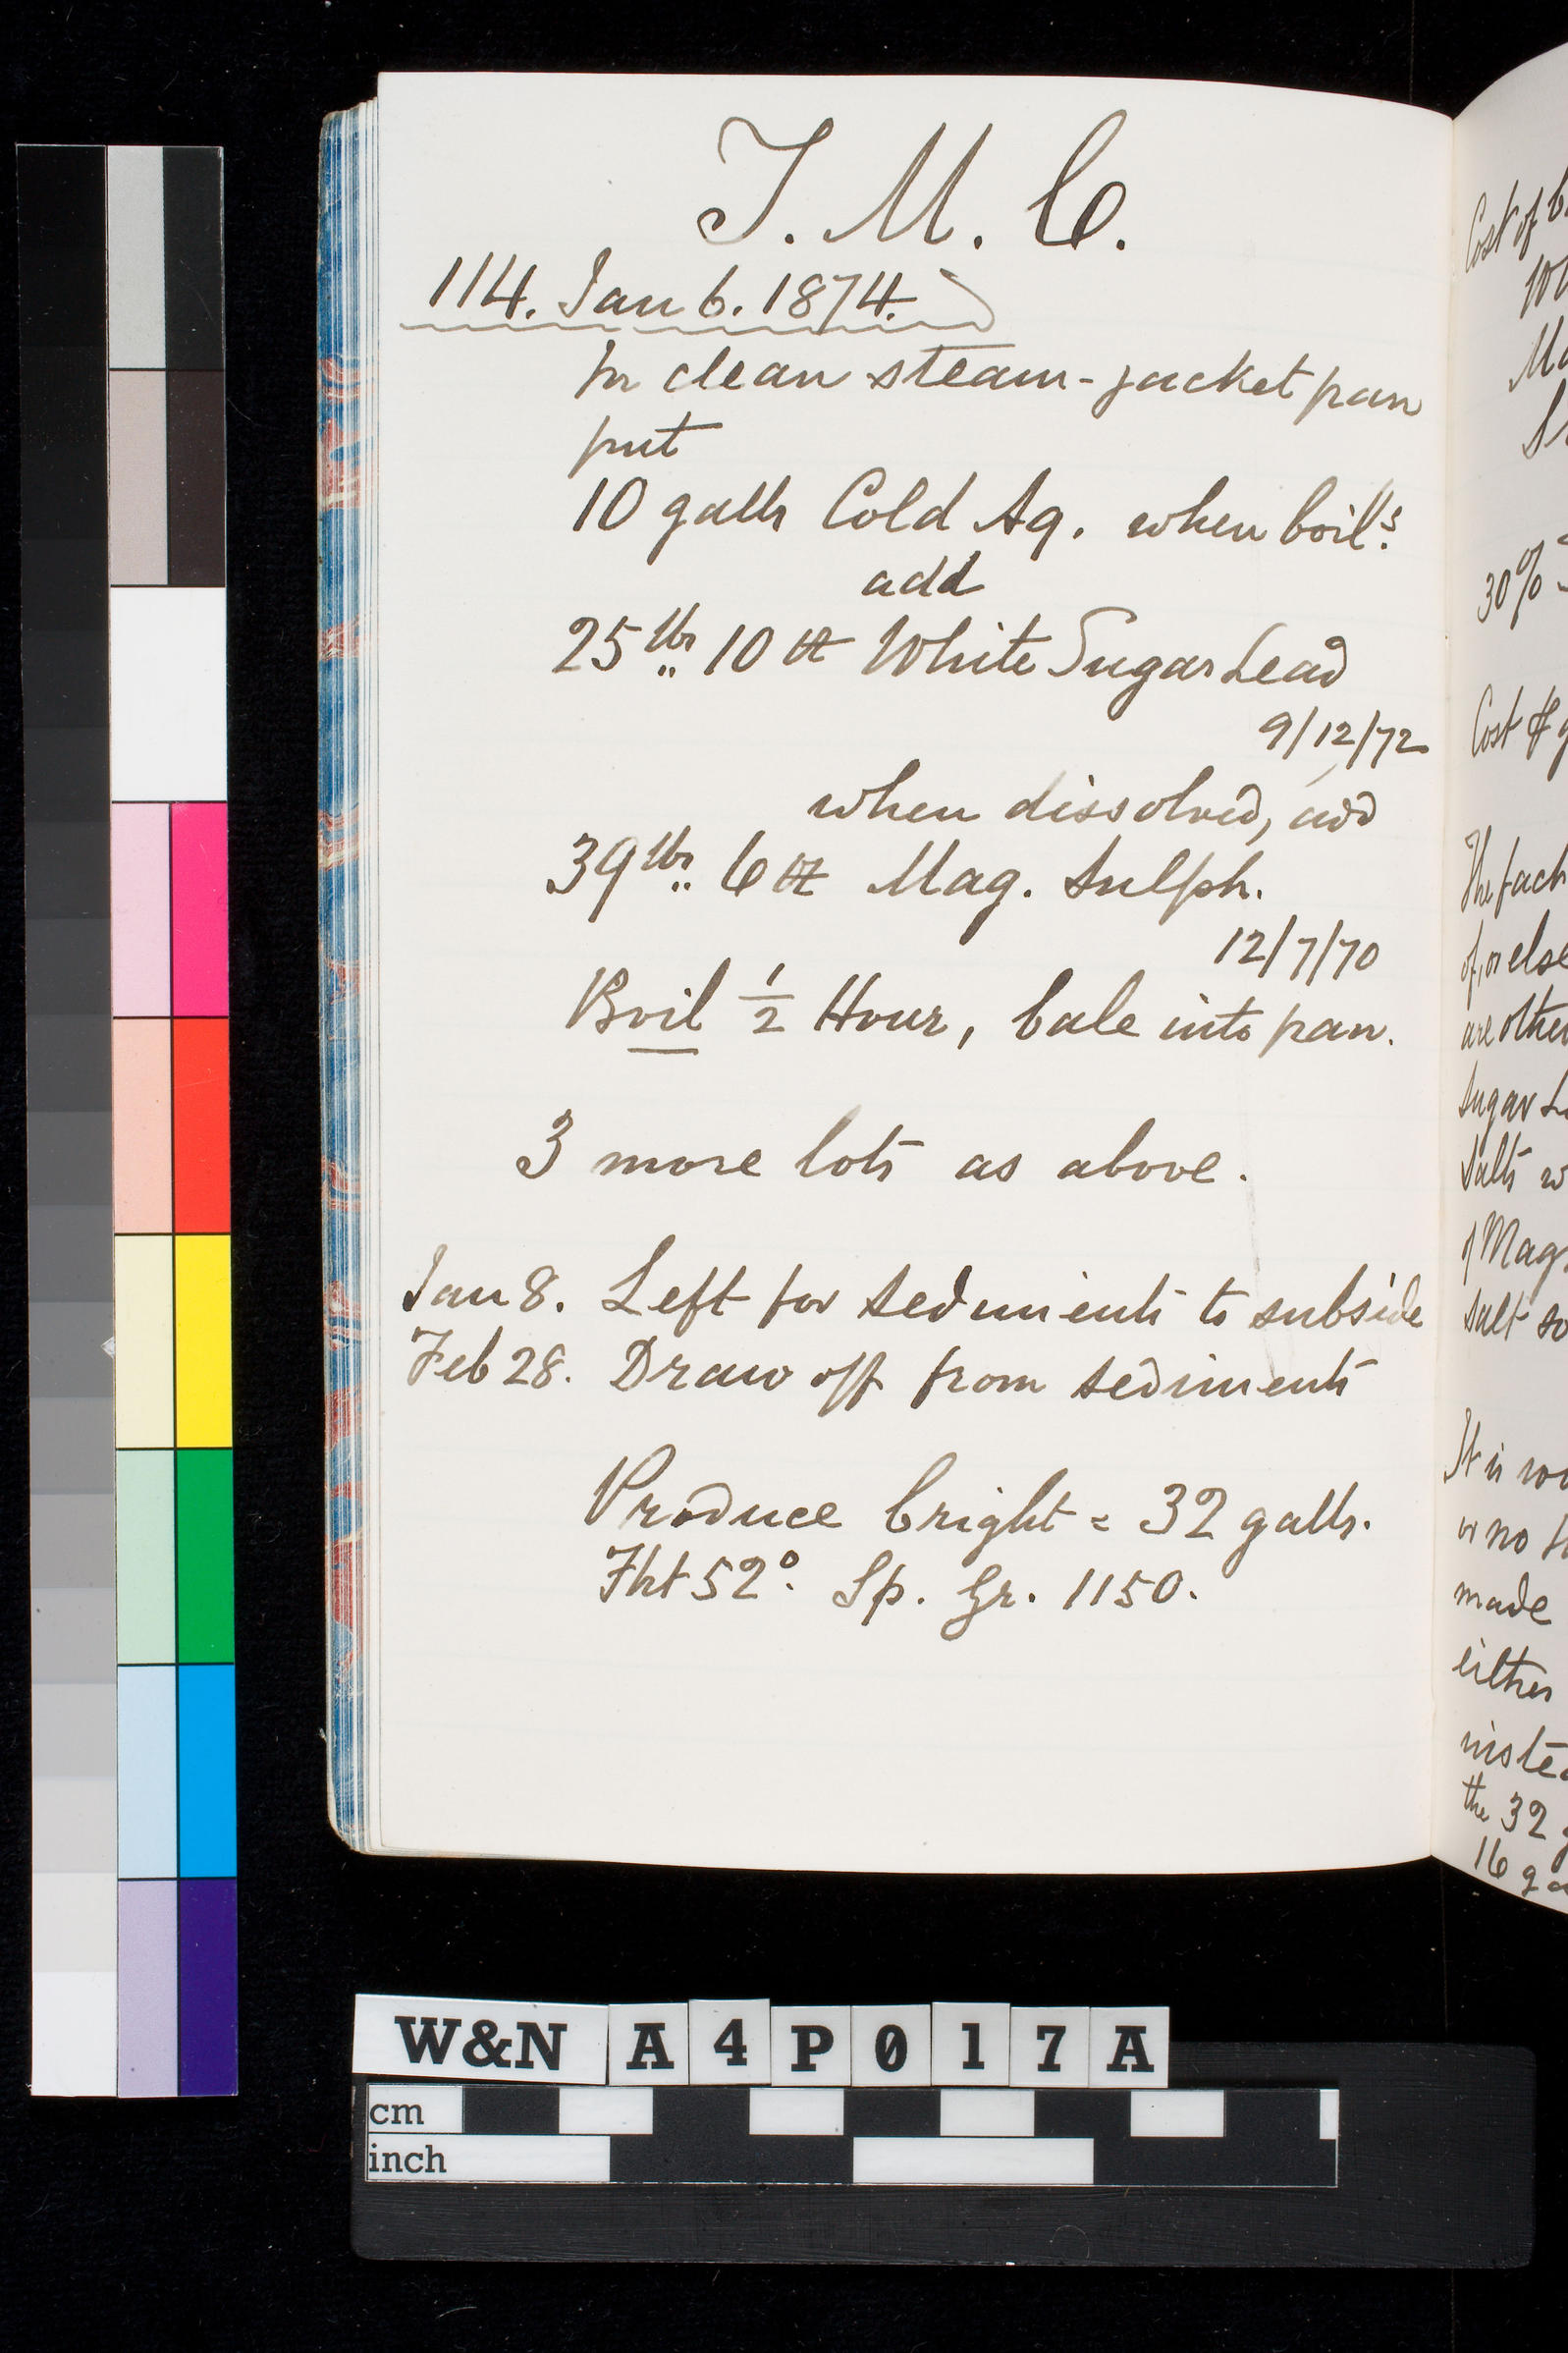 T. M. C.
114. Jan 6. 1874.
In clean steam-jacket pan
put
10 galls Cold Aq. when boil.s
add
25 lbs 10 oz White Sugar Lead
9/12/72
when dissolved, add
39 lbs 6 oz Mag. Sulph.
12/7/70
Boil 1/2 Hour, bale into pan.
3 more lots as above.
Jan 8. Left for sediments to subside
Feb 28. Draw off from sediments
Produce bright = 32 galls.
Fht 52°. Sp. Gr. 1150.
Cost of
30%
Cost
The
of, or else
are other
sugar
salts
of Mag.
salt
It is
or no
made
either
the 32
16
W&N A 4 P 0 1 7 A
cm
inch